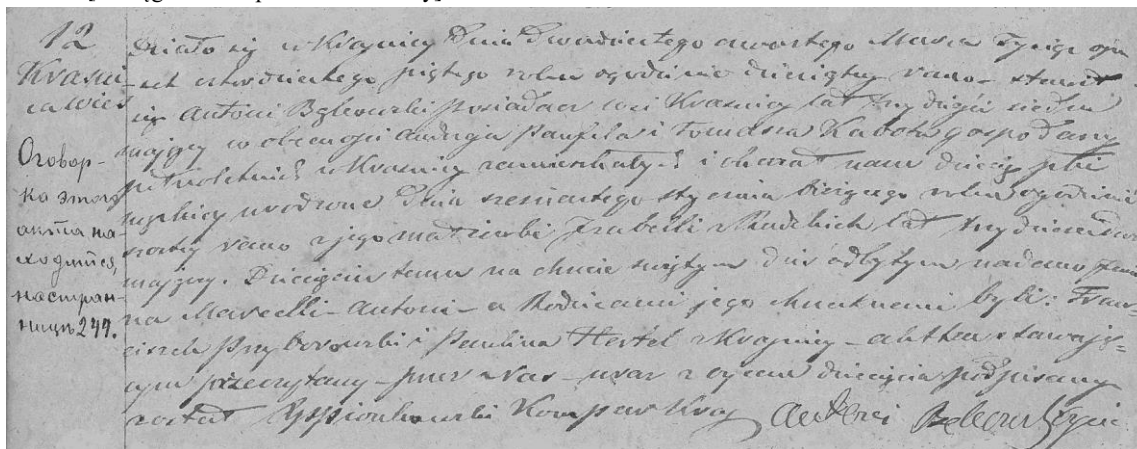 12
Kraśni
ca wieś
Оговор-
ка этого
акта на-
ходится,
на стран-
ницѣ 244.
Działo się w Kraśnicy Dnia Dwudziestego czwartego Marca Tysiąc ośm-
set czterdziestego piątego roku o godzinie dziesiątej rano – stawił
się Antoni Bęlewski posiadacz wsi Kraśnicy lat trzydzieści siedm
mający w obecności Jędrzeja Panfila i Tomasza gospodarzy
pełnoletnich w Kraśnicy zamieszkałych i okazał nam dziecię płci
męskiej urodzone Dnia szesnastego stycznia bieżącego roku o godzinie
szóstej rano z jego małżonki Izabelli z Rudzkich lat trzydzieści
mającej. Dziecięciu temu na chrzcie świętym dziś odbytym nadano Imio-
na Marcelli – Antoni – a Rodzicami jego chrzestnemi byli: Fran-
ciszek Przyborowski i Paulina Hertel z Krajnicy – akt ten stawają-
cym przeczytany – przez Nas – wraz z ojcem dziecięcia podpisany
został